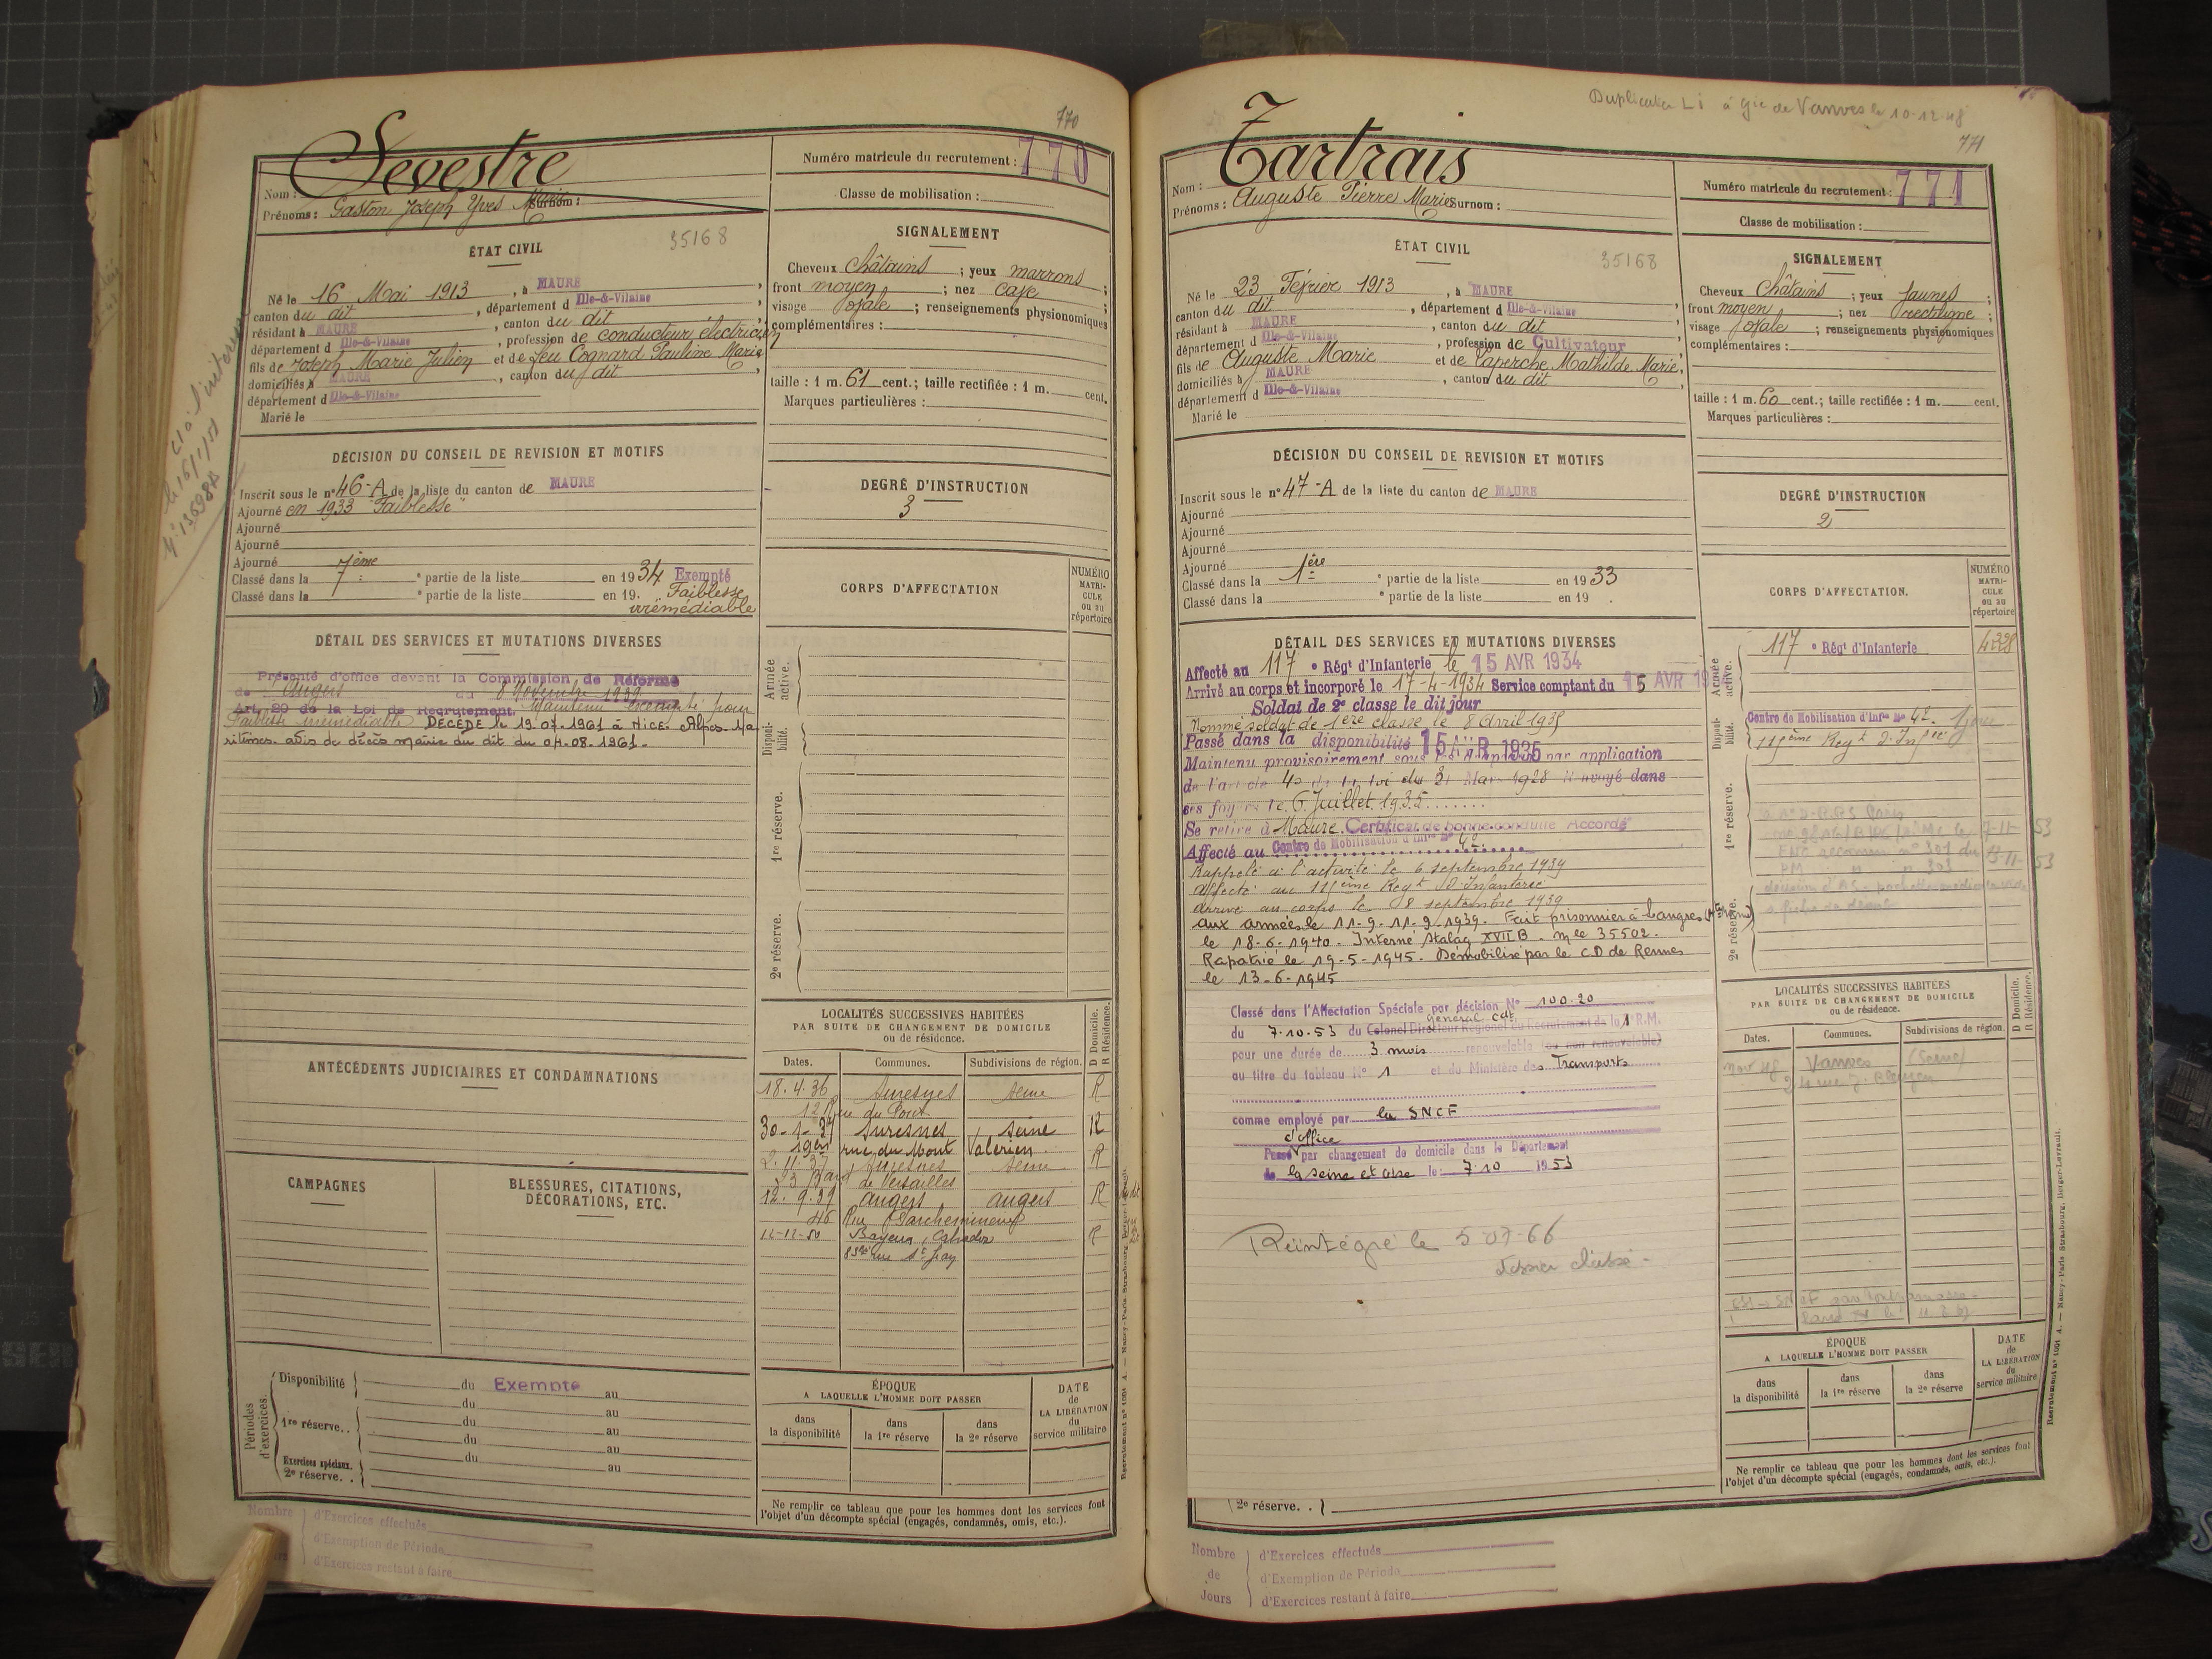 770
Sevestre
Nom :
Prénoms : Gaston Joseph Yves Marie Surnom :
Numéro matricule du recrutement : 770
Classe de mobilisation :
ÉTAT CIVIL
35168
Né le 16 Mai 1913, à MAURE,
canton du dit, département d Ille-&-Vilaine,
résidant à MAURE, canton du dit
département d Ille-&-Vilaine, profession de conducteur électricien
fils de Joseph Marie Julien et de feu Cognard Pauline Marie
domiciliés à MAURE, canton du dit
département d Ille-&-Vilaine
Marié le
SIGNALEMENT
Cheveux châtains ; yeux marrons ;
front moyen ; nez cave ;
visage ovale ; renseignements physionomiques
complémentaires :
taille : 1 m. 61 cent. ; taille rectifiée : 1 m. cent.
Marques particulières :
DÉCISION DU CONSEIL DE REVISION ET MOTIFS
Inscrit sous le n° 46-A de la liste du canton de MAURE
Ajourné en 1933 "Faiblesse"
Ajourné
Ajourné
Ajourné
Classé dans la 7ème partie de la liste en 1934 Exempté
Classé dans la partie de la liste en 19 . Faiblesse
irrémédiable
DEGRÉ D'INSTRUCTION
3
CORPS D'AFFECTATION
NUMÉRO
MATRI-
CULE
ou au
répertoire
DÉTAIL DES SERVICES ET MUTATIONS DIVERSES
Présenté d'office devant la Commission de Réforme
de Angers du 8 Novembre 1939
Art. 20 de la Loi de Recrutement. Maintenu exempté pour
Faiblesse irrémédiable. DECEDE le 19.07.1961 à NICE - Alpes-Ma
ritimes. avis de décès mairie du dit du 04.08.1961.
Armée
active.
Disponi-
bilité.
1re réserve.
2e réserve.
LOCALITÉS SUCCESSIVES HABITÉES
PAR SUITE DE CHANGEMENT DE DOMICILE
ou de résidence.
D Domicile.
R Résidence.
Dates. Communes. Subdivisions de région.
18.4.36 Suresnes Seine R
12 Rue du Pont
30-1-37 Suresnes Seine R
19bis rue du Mont Valérien
2.11.37 Suresnes Seine R
53 Bard de Versailles
12.9.39 Angers Angers R
46 Rue Parcheminerie
12-12-50 Bayeux, Calvados R
83bis rue St Jean
ANTÉCÉDENTS JUDICIAIRES ET CONDAMNATIONS
CAMPAGNES
BLESSURES, CITATIONS,
DÉCORATIONS, ETC.
Périodes
d'exercices.
Disponibilité du Exempté au
du au
1re réserve. . du au
du au
Exercices spéciaux. du au
2e réserve. .
ÉPOQUE
A LAQUELLE L'HOMME DOIT PASSER
dans
la disponibilité
dans
la 1re réserve
dans
la 2e réserve
DATE
de
LA LIBÉRATION
du
service militaire
Ne remplir ce tableau que pour les hommes dont les services font
l'objet d'un décompte spécial (engagés, condamnés, omis, etc.).
Nombre
d'Exercices effectués
d'Exemption de Période
d'Exercices restant à faire
Duplicata L i à Gie de Vanves le 10-12-48
771
Tartrais
Nom :
Prénoms : Auguste Pierre Marie Surnom :
Numéro matricule du recrutement : 771
Classe de mobilisation :
ÉTAT CIVIL
35168
Né le 23 Février 1913, à MAURE
canton du dit, département d Ille-&-Vilaine,
résidant à MAURE, canton du dit
département d Ille-&-Vilaine, profession de Cultivateur
fils de Auguste Marie et de Laperche Mathilde Marie,
domiciliés à MAURE, canton du dit
département d Ille-&-Vilaine
Marié le
SIGNALEMENT
Cheveux châtains ; yeux jaunes ;
front moyen ; nez rectiligne ;
visage ovale ; renseignements physionomiques
complémentaires :
taille : 1 m. 60 cent. ; taille rectifiée : 1 m. cent.
Marques particulières :
DÉCISION DU CONSEIL DE REVISION ET MOTIFS
Inscrit sous le n° 47-A de la liste du canton de MAURE
Ajourné
Ajourné
Ajourné
Ajourné
Classé dans la 1ère partie de la liste en 1933
Classé dans la partie de la liste en 19 .
DEGRÉ D'INSTRUCTION
2
CORPS D'AFFECTATION.
NUMÉRO
MATRI-
CULE
ou au
répertoire
DÉTAIL DES SERVICES ET MUTATIONS DIVERSES
Affecté au 117 e Régt d'Infanterie le 15 AVR 1934
Arrivé au corps et incorporé le 17-4-1934 Service comptant du 15 AVR 19
Soldat de 2e classe le dit jour
Nommé soldat de 1ère classe le 8 avril 1935
Passé dans la disponibilité 15 AVR 1935
Maintenu provisoirement sous les drapeaux par application
de l'article 40 de la loi du 31 Mars 1928 Renvoyé dans
ses foyers le 6 Juillet 1935
Se retire à Maure. Certificat de bonne conduite Accordé
Affecté au Centre de Mobilisation d'Infie N° 42.
Rappelé à l'activité le 6 septembre 1939
affecté au 115ème Regt d'Infanterie
arrivé au corps le 8 septembre 1939
aux armées le 11-9-11-9-1939. Fait prisonnier à Langres (Hte Marne)
le 18-6-1940. Interné Stalag XVII B. mle 35502.
Rapatrié le 19-5-1945. Démobilisé par le C.D de Rennes
le 13-6-1945
Classé dans l'Affectation Spéciale par décision N° 100.20
du 7.10.53 du Colonel Directeur Régional du Recrutement de la 1e R.M.
général cdt
pour une durée de 3 mois renouvelable (ou non renouvelable)
au titre du tableau N° 1 et du Ministère des Transports
comme employé par la SNCF
d'office
Passé par changement de domicile dans le Département
de la Seine et Oise le 7.10 1953
Réintégré le 5-07-66
dossier classé -
Armée
active.
117 e Régt d'Infanterie 4328
Disponi-
bilité.
Centre de Mobilisation d'Infie N° 42.
115ème Regt d'Infie
1re réserve.
2e réserve.
LOCALITÉS SUCCESSIVES HABITÉES
PAR SUITE DE CHANGEMENT DE DOMICILE
ou de résidence.
D Domicile.
R Résidence.
Dates. Communes. Subdivisions de région.
Nov 48 Vanves (Seine)
ÉPOQUE
A LAQUELLE L'HOMME DOIT PASSER
dans
la disponibilité
dans
la 1re réserve
dans
la 2e réserve
DATE
de
LA LIBÉRATION
du
service militaire
Ne remplir ce tableau que pour les hommes dont les services font
l'objet d'un décompte spécial (engagés, condamnés, omis, etc.).
2e réserve. .
Nombre
de
Jours
d'Exercices effectués
d'Exemption de Période
d'Exercices restant à faire